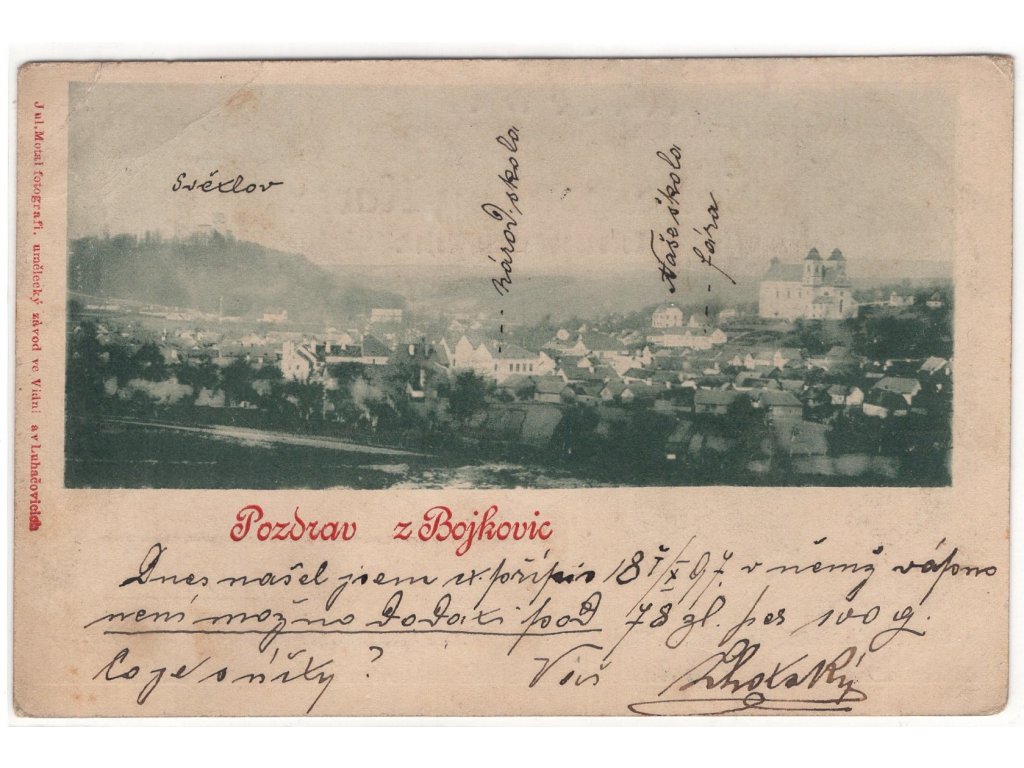 Jul. Motal fotografi. umělecký závod ve Vídni a v Luhačovicích
Světlov
národ. škola
Naše škola
fára
Pozdrav z Bojkovic
Dnes našel jsem přípis 18 97 v němž vápno
není možno dodati pod 78 zl. per 100 q.
Co je s ?
Váš